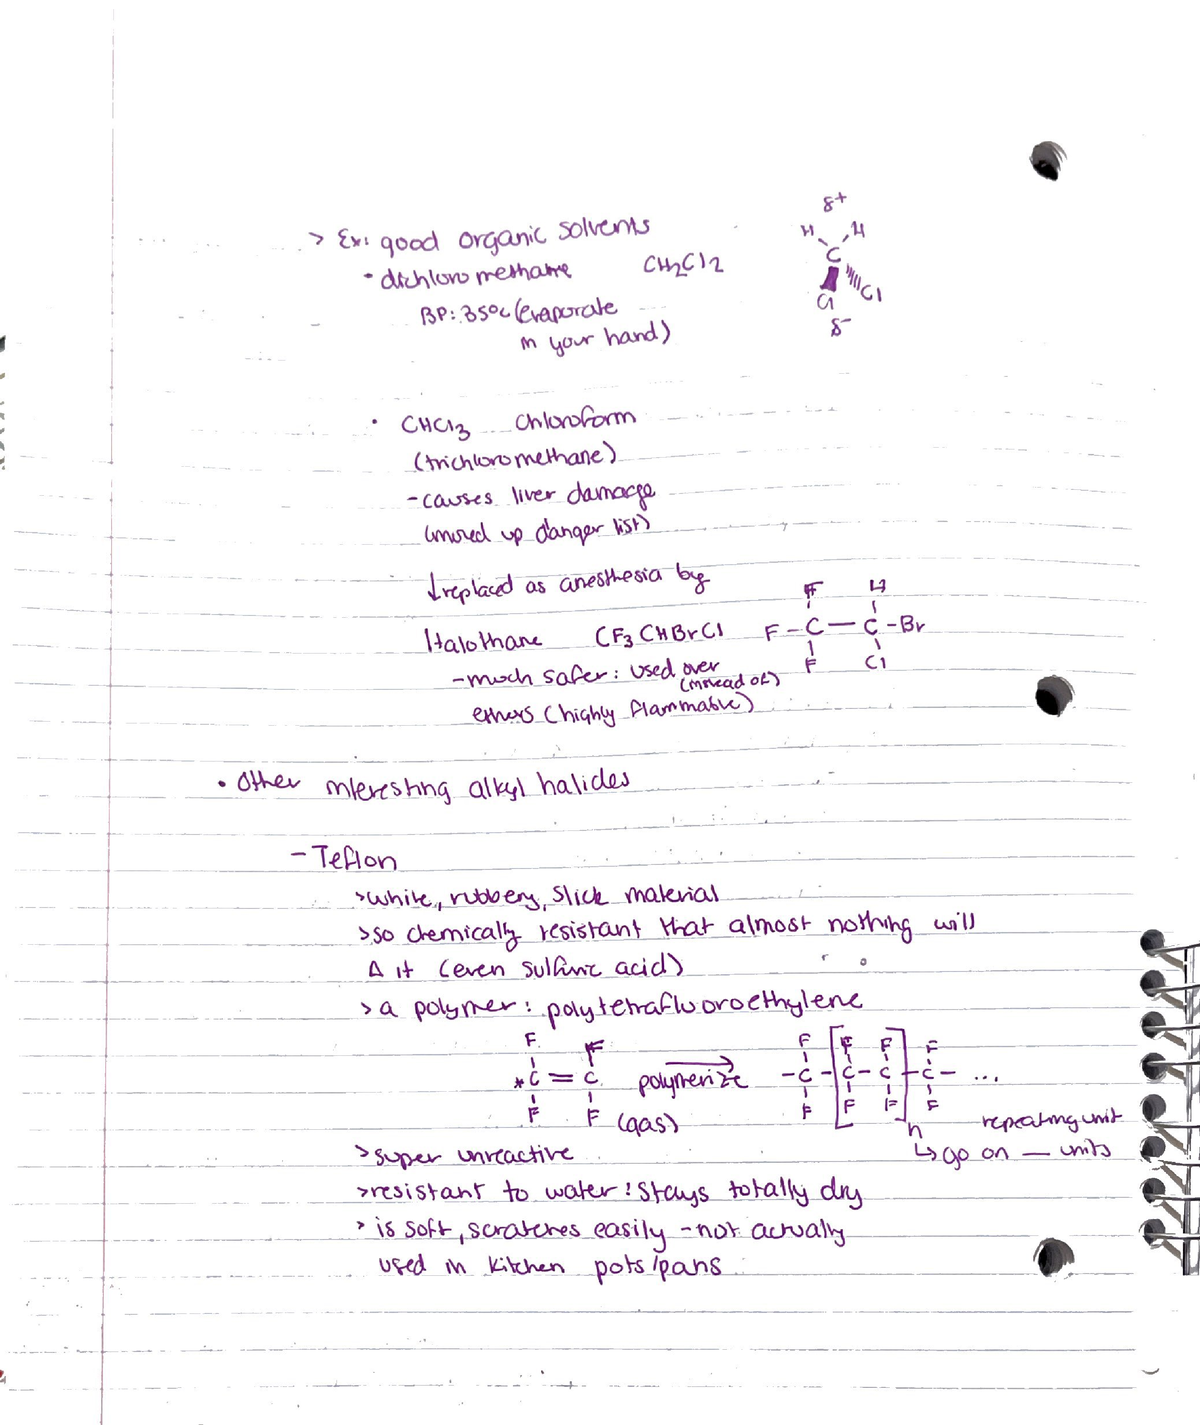 > Ex: good organic solvents
• dichloromethane CH2Cl2
BP: 35°C (evaporate
in your hand)
δ+
H H
C
Cl Cl
δ-
• CHCl3 Chloroform
(trichloromethane)
- causes liver damage
(moved up danger list)
↓replaced as anesthesia by
Halothane CF3CHBrCl
F H
F-C-C-Br
F Cl
- much safer: used over
(instead of)
ethers (highly flammable)
• Other interesting alkyl halides
- Teflon
> white, rubbery, slick material
> so chemically resistant that almost nothing will
Δ it (even sulfuric acid)
> a polymer: polytetrafluoroethylene
F F F F F F
*C=C polymerize -C-[C-C]-C- ...
F F (gas) F F F F
n repeating unit
↳ go on — units
> super unreactive
> resistant to water! Stays totally dry
> is soft, scratches easily - not actually
used in kitchen pots/pans